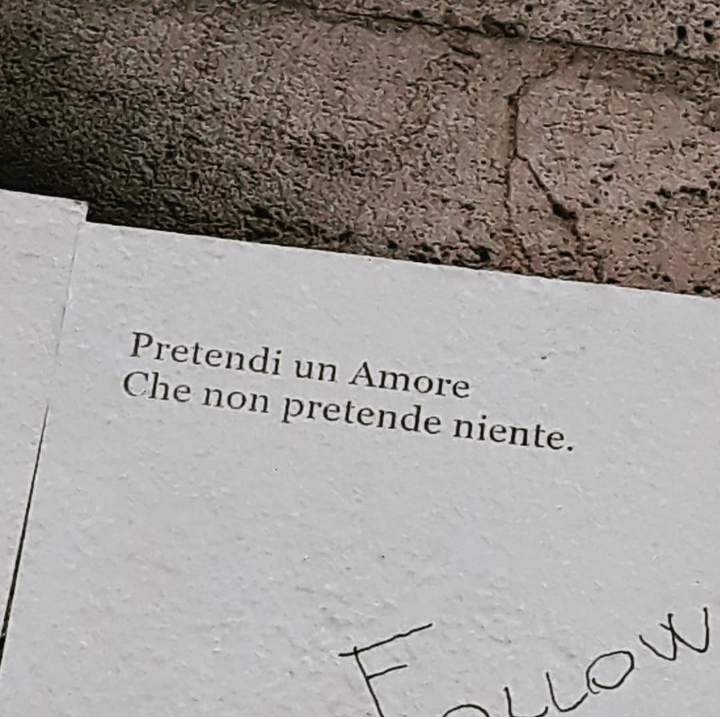 Pretendi un Amore
Che non pretende niente.
FOLLOW